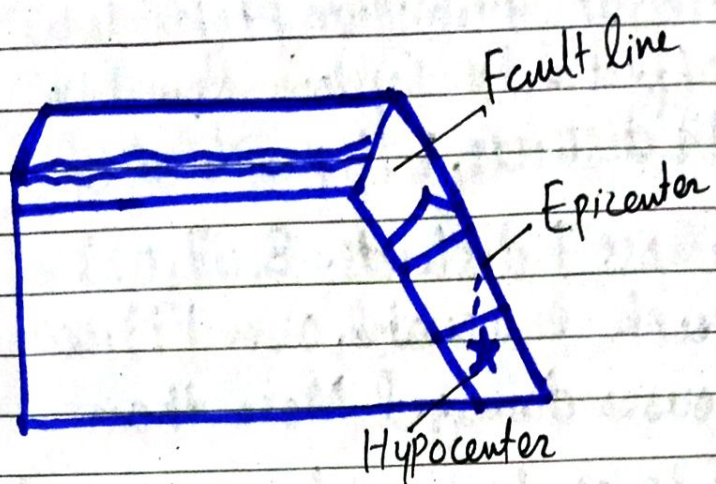 Fault line
Epicenter
Hypocenter